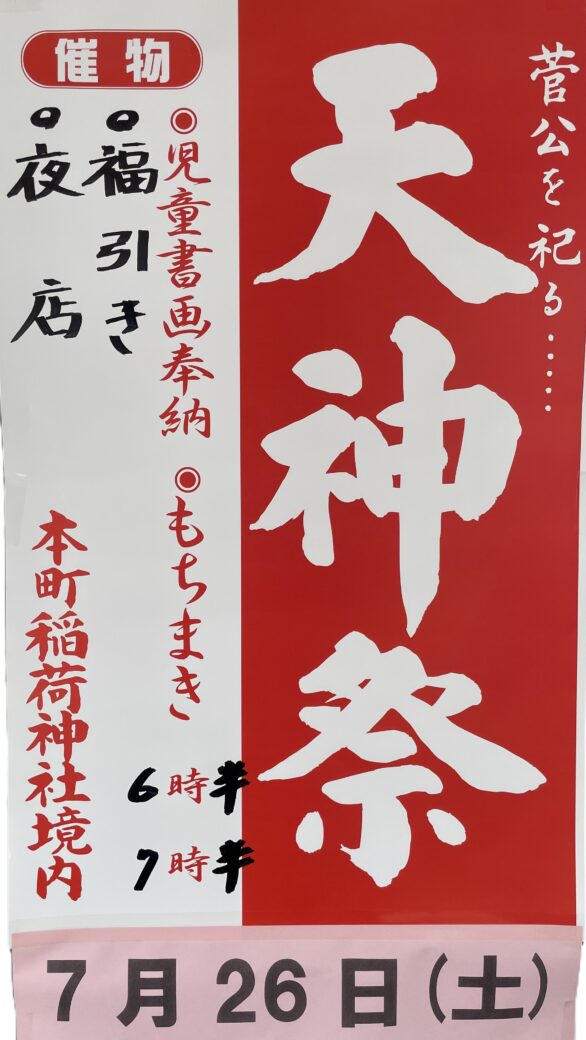 菅公を祀る……
天神祭
催物
◉児童書画奉納 ◉もちまき
6時半
7時半
○福引き
○夜店
本町稲荷神社境内
7月26日(土)